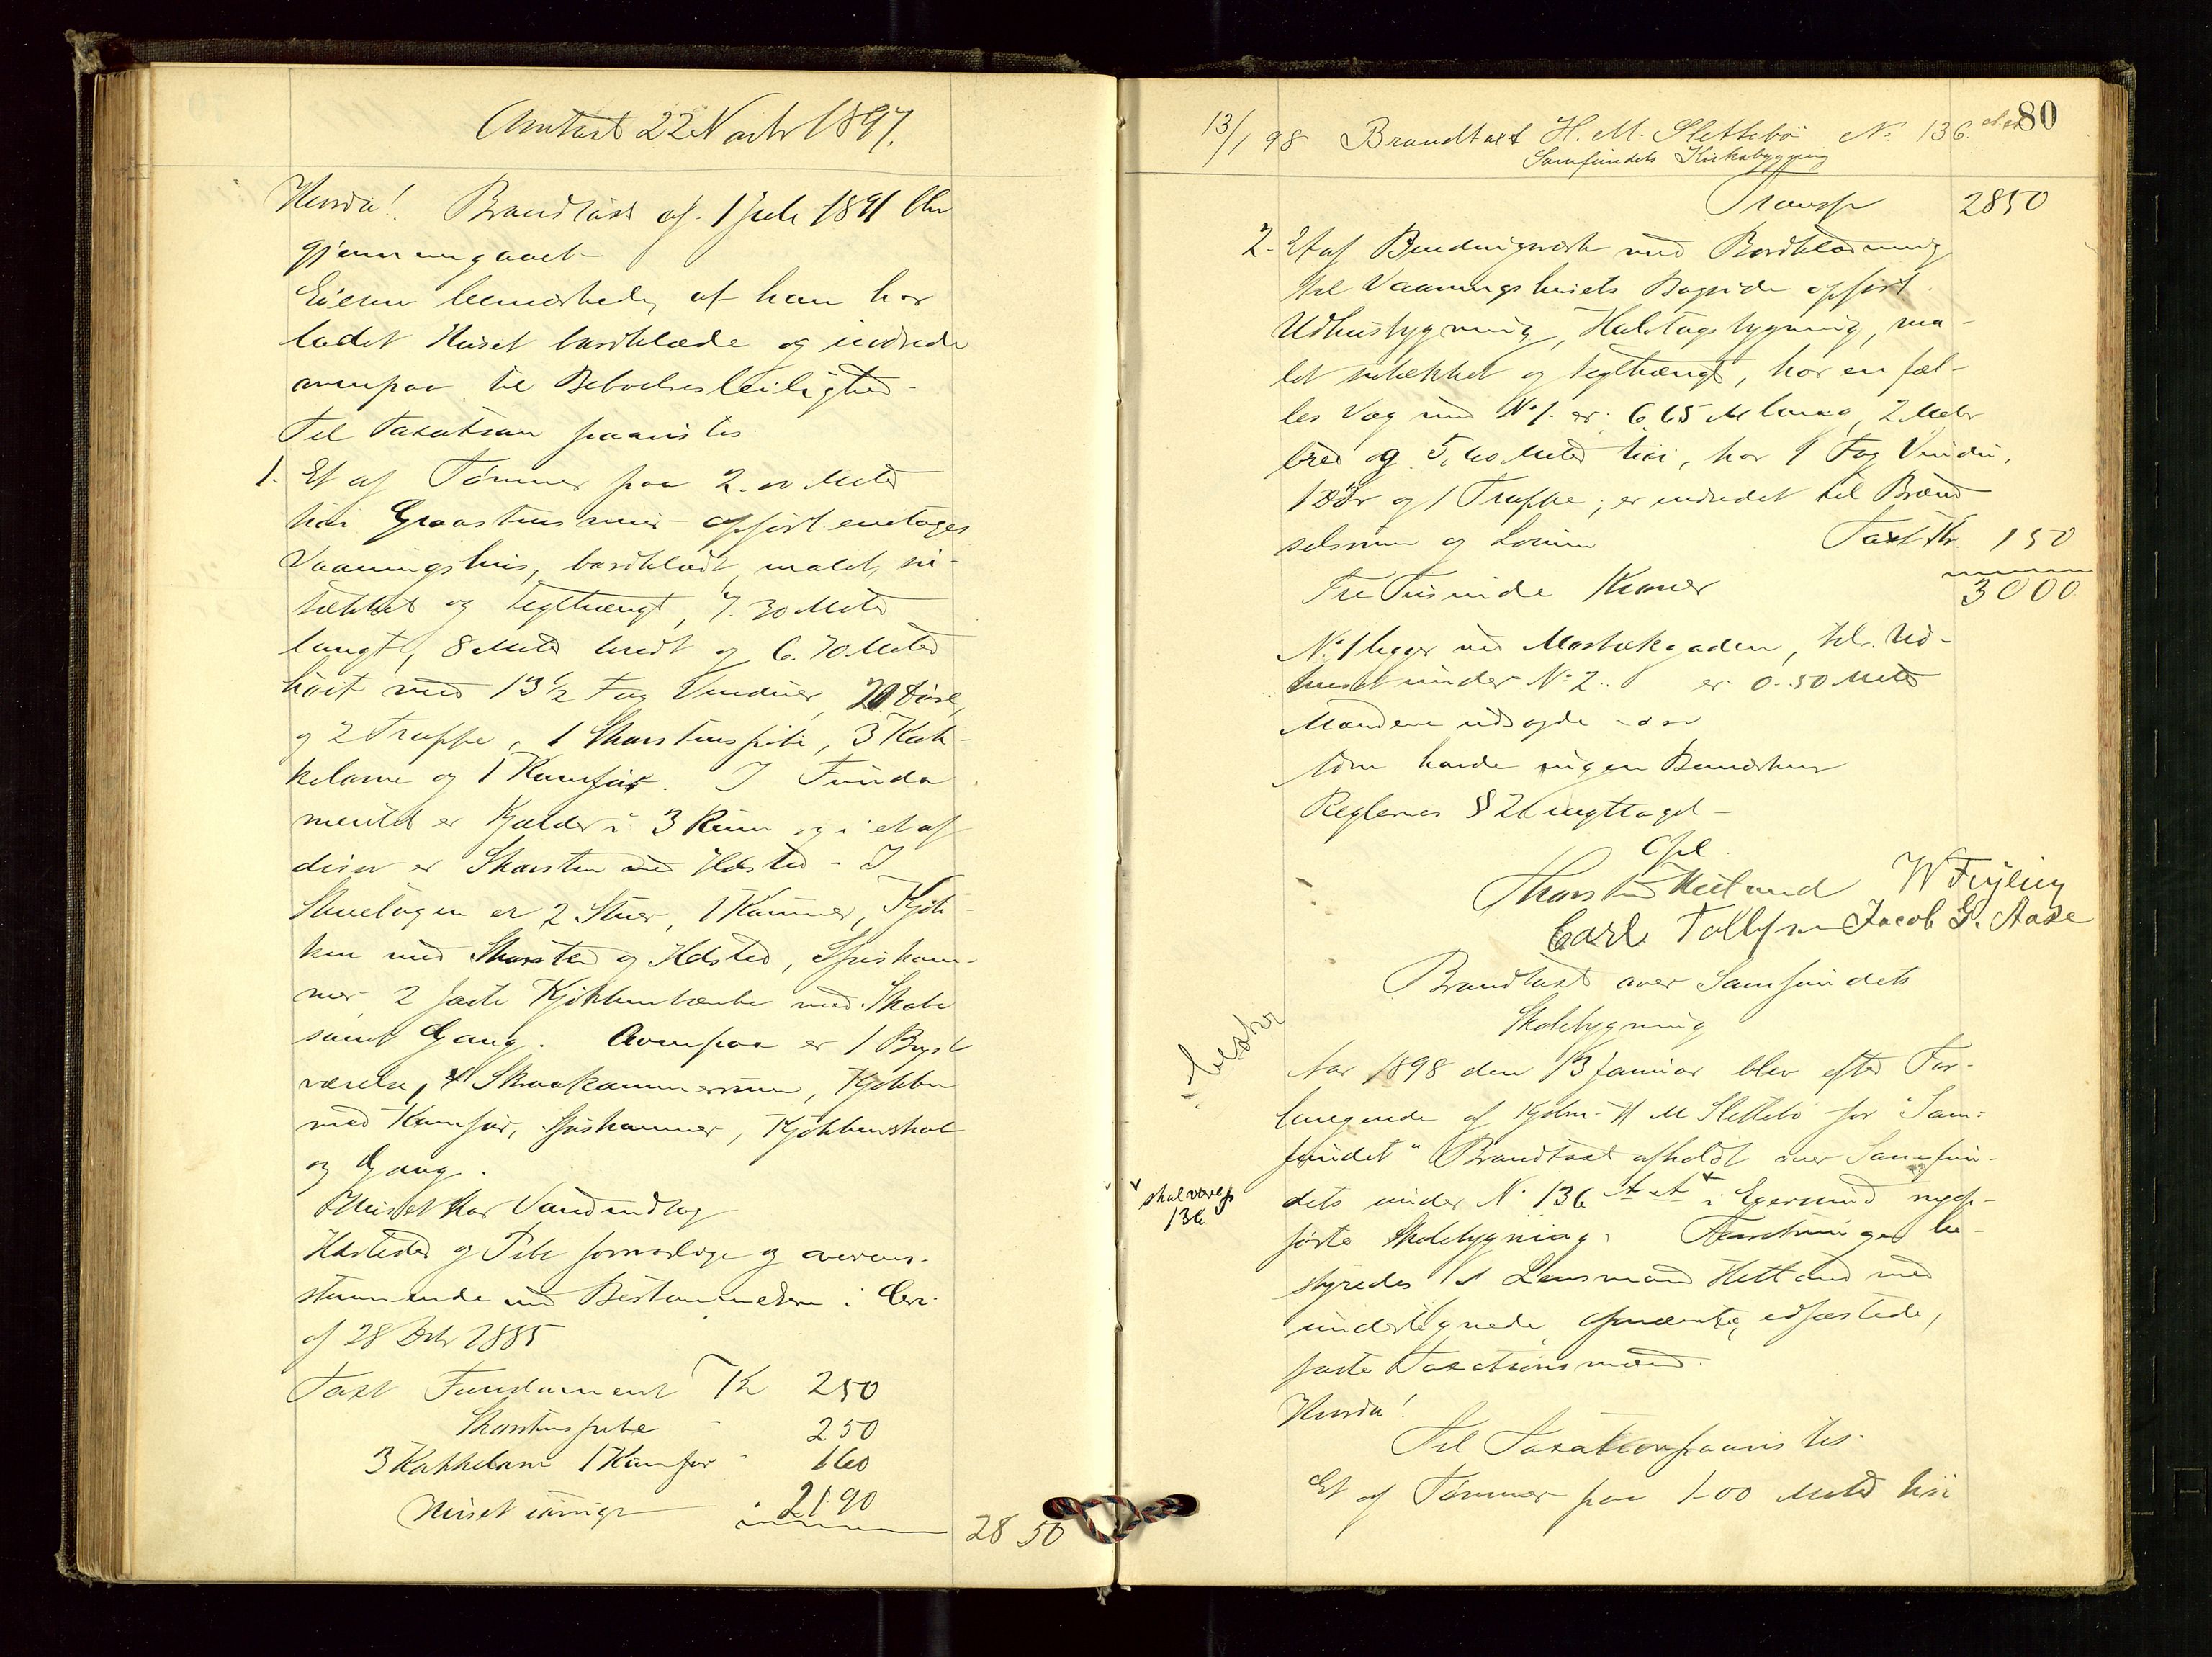 Omtaxt 22 Novbr 1897.
Hvorda! Brandtaxt af 1 Juli 1891 blev
gjennemgaaet
Eieren bemærkede, at han har
ladet Huset bordklæde og indrede
ovenpaa til Beboelsesleilighed.
Til Taxation paavistes
1. Et af Tømmer paa 2.00 Meter
høi Graastensmur opført enetages
Vaaningshus, bordklædt, malet, su-
tækket og Teglhængt, 7.30 Meter
langt, 8 Meter bredt og 6.70 Meter
høit med 13 1/2 Fag Vinduer, 20 Døre,
og 2 Trappe, 1 Skorstenspibe, 3 Kak-
kelovne og 1 Komfur. I Funda
mentet er Kjælder i 3 Rum og i et af
disse er Skorsten med Ildsted - I
Stuetagen er 2 Stuer, 1 Kammer, Kjøk-
ken med Skorsten og Ildsted, Spiskam-
mer 2 faste Kjøkkenbænke med Skabe
samt Gang. Ovenpaa er 1 Bryst
værelse, 4 Skraakammerrum, Kjøkken
med Komfur, Spiskammer, Kjøkkenskab
og Gang.
Huset har Vandindlæg
Ildsteder og Pibe forsvarlige og overens-
stemmende med Bestemmelsen i Circ.
af 28 Dcbr 1885
Taxt Fundament Kr 250
Skorstenspibe - 250
3 Kakkelovne 1 Komfur - 160
Huset iøvrigt - 2190
2850
80
13/1 98 Brandtaxt H. M. Slettebö No 136.
Samfundets Kirkebygning
Transp 2850
2. Et af Bindingsverk med Bordklædning
til Vaaningshusets Bagside opført
Udhusbygning, Halvtagsbygning, ma-
let sutækket og teglhængt, har en fæl-
les Væg med No 1. er 6,65 M lang, 2 Meter
bred og 5,40 Meter høi, har 1 Fag Vindu,
1 Dør og 1 Trappe; er indredet til Brænd
selsrum og Lorum Taxt Kr. 150
Tre Tusinde Kroner 3000
No 1 ligger ved Mosbækgaden, til Ud-
huset under No 2. er 0.50 Meter
Mændene udsagde
som havde ingen Bemærkn
Reglernes § 21 iagttaget -
Opl.
Thorsten Hetland W Feyling
Carl Tollefsen Jacob G. Aase
Brandtaxt over Samfundets
Skolebygning
Aar 1898 den 13 Januar blev efter For-
langende af Kjøbm. H M Slettebö for "Sam-
fundet" Brandtaxt afholdt over Samfun-
dets under No 136 i Egersund nyop-
førte Skolebygning. Forretningen be-
styredes af Lensmand Hetland med
undertegnede opnævnte, edfæstede,
faste Taxationsmænd.
skal være
136
Hvorda!
Til Taxation paavistes
Et af Tømmer paa 1.00 Meter høi